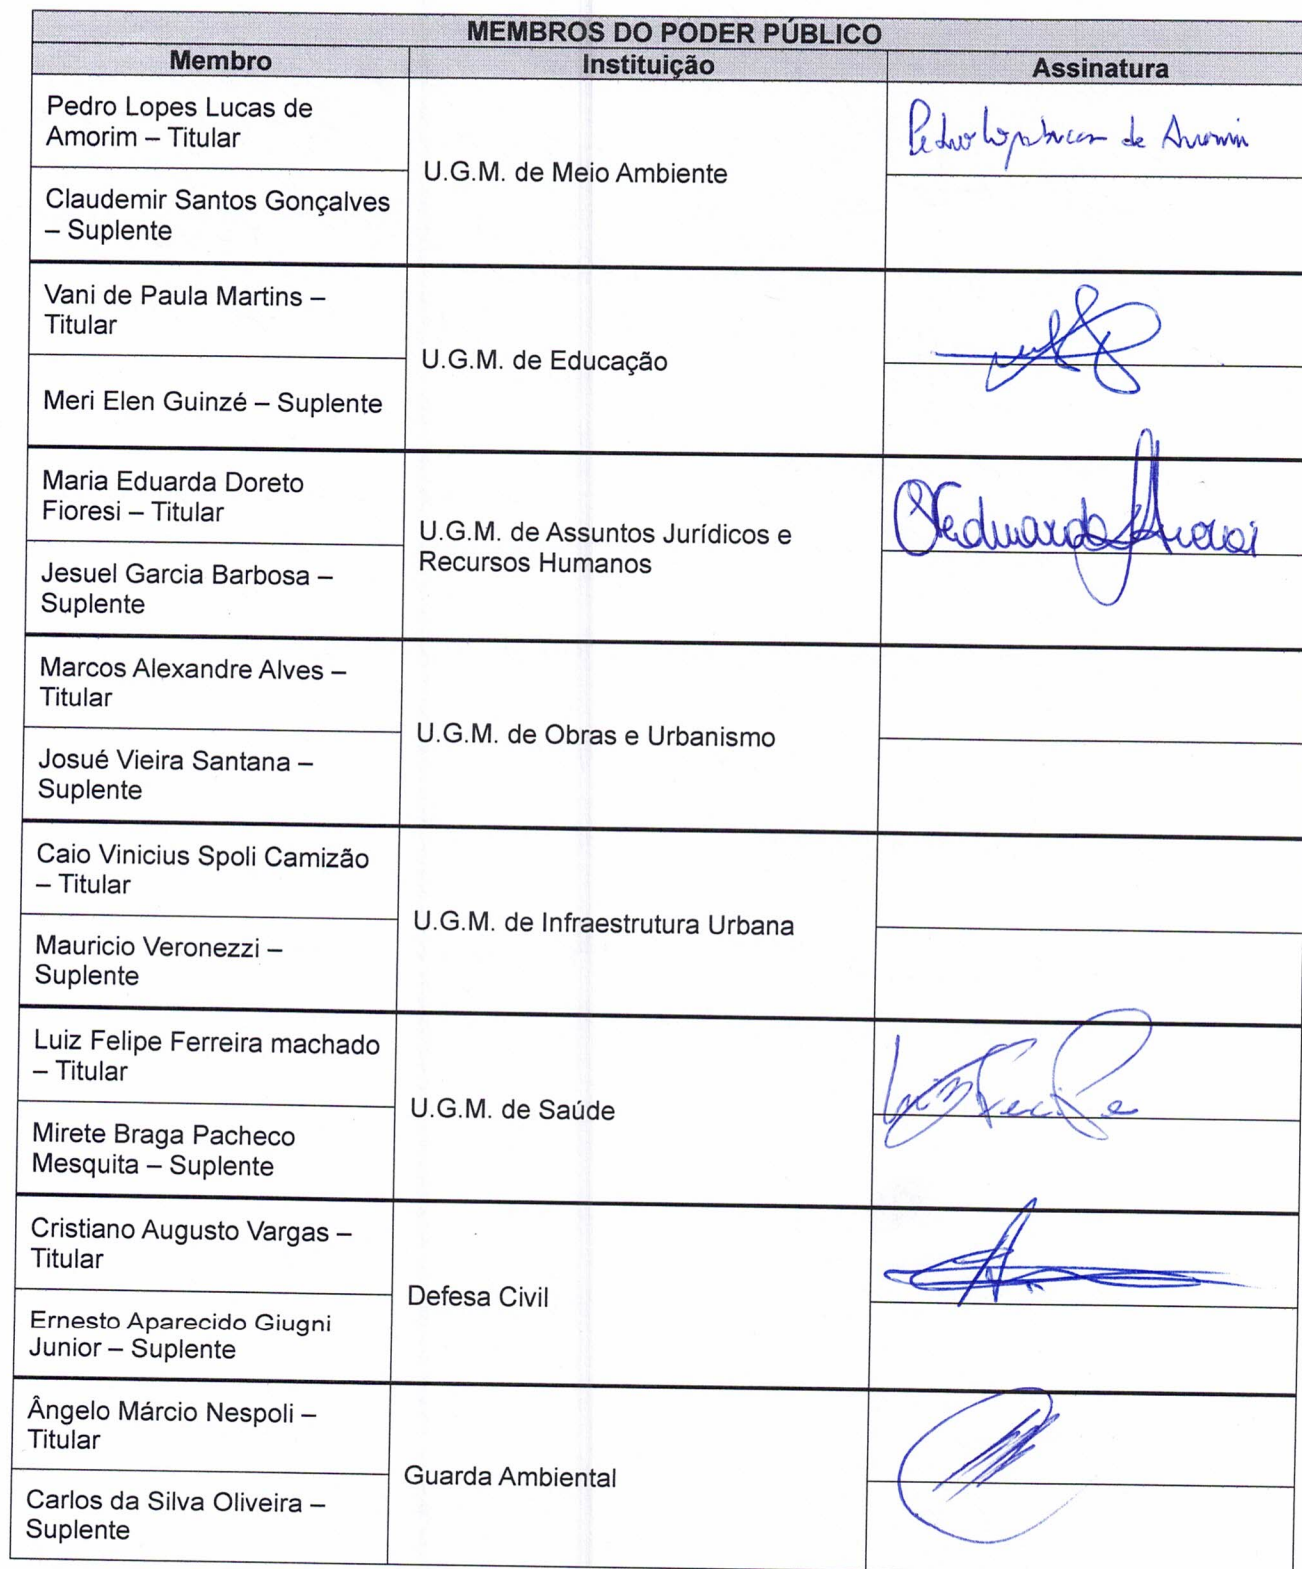 MEMBROS DO PODER PÚBLICO
Membro Instituição Assinatura
Pedro Lopes Lucas de
Amorim – Titular
U.G.M. de Meio Ambiente
Pedro Lopes Lucas de Amorim
Claudemir Santos Gonçalves
– Suplente
Vani de Paula Martins –
Titular
U.G.M. de Educação
Meri Elen Guinzé – Suplente
Maria Eduarda Doreto
Fioresi – Titular
U.G.M. de Assuntos Jurídicos e
Recursos Humanos
Jesuel Garcia Barbosa –
Suplente
Marcos Alexandre Alves –
Titular
U.G.M. de Obras e Urbanismo
Josué Vieira Santana –
Suplente
Caio Vinicius Spoli Camizão
– Titular
U.G.M. de Infraestrutura Urbana
Mauricio Veronezzi –
Suplente
Luiz Felipe Ferreira machado
– Titular
U.G.M. de Saúde
Luiz Felipe
Mirete Braga Pacheco
Mesquita – Suplente
Cristiano Augusto Vargas –
Titular
Defesa Civil
Ernesto Aparecido Giugni
Junior – Suplente
Ângelo Márcio Nespoli –
Titular
Guarda Ambiental
Carlos da Silva Oliveira –
Suplente